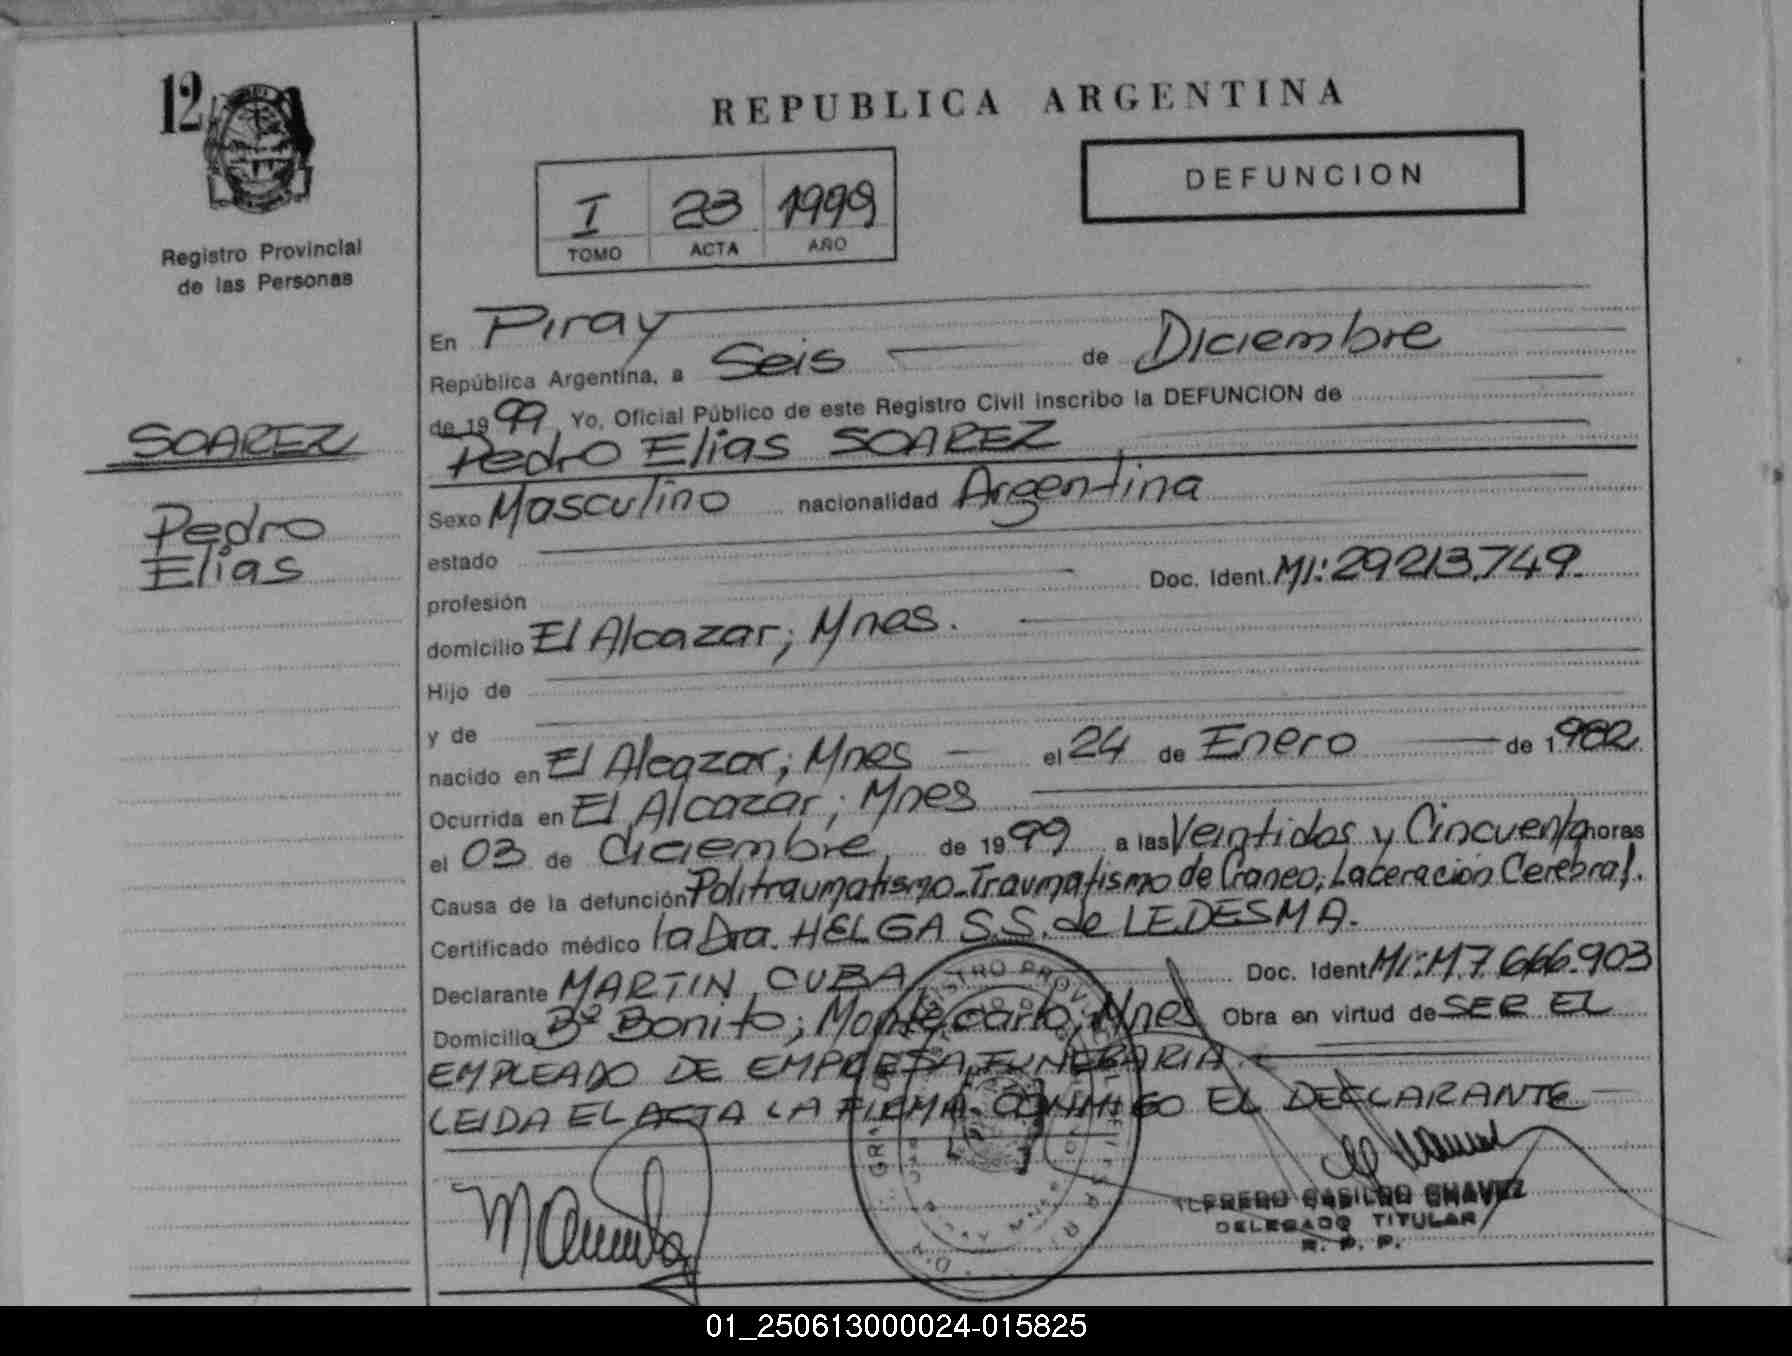 12
Registro Provincial
de las Personas
SOAREZ
Pedro
Elias
REPUBLICA ARGENTINA
DEFUNCION
I 23 1999
TOMO ACTA AÑO
En Piray
República Argentina, a Seis de Diciembre
de 1999 Yo, Oficial Público de este Registro Civil inscribo la DEFUNCION de
Pedro Elias SOAREZ
Sexo Masculino nacionalidad Argentina
estado
profesión Doc. Ident. MI: 29213.749.
domicilio El Alcazar; Mnes.
Hijo de
y de
nacido en El Alcazar; Mnes el 24 de Enero de 1.982
Ocurrida en El Alcazar; Mnes
el 03 de diciembre de 1999 a las Veintidos y Cincuenta horas
Causa de la defunción Politraumatismo-Traumatismo de Craneo; Laceración Cerebral.
Certificado médico la Dra. HELGA S.S. de LEDESMA.
Declarante MARTIN CUBA Doc. Ident MI: M7.666.903
Domicilio Bº Bonito; Montecarlo, Mnes Obra en virtud de SER EL
EMPLEADO DE EMPRESA FUNERARIA
LEIDA EL ACTA LA FIRMA CONMIGO EL DECLARANTE
CASILDO CHAVEZ
DELEGADO TITULAR
R. P. P.
01_250613000024-015825